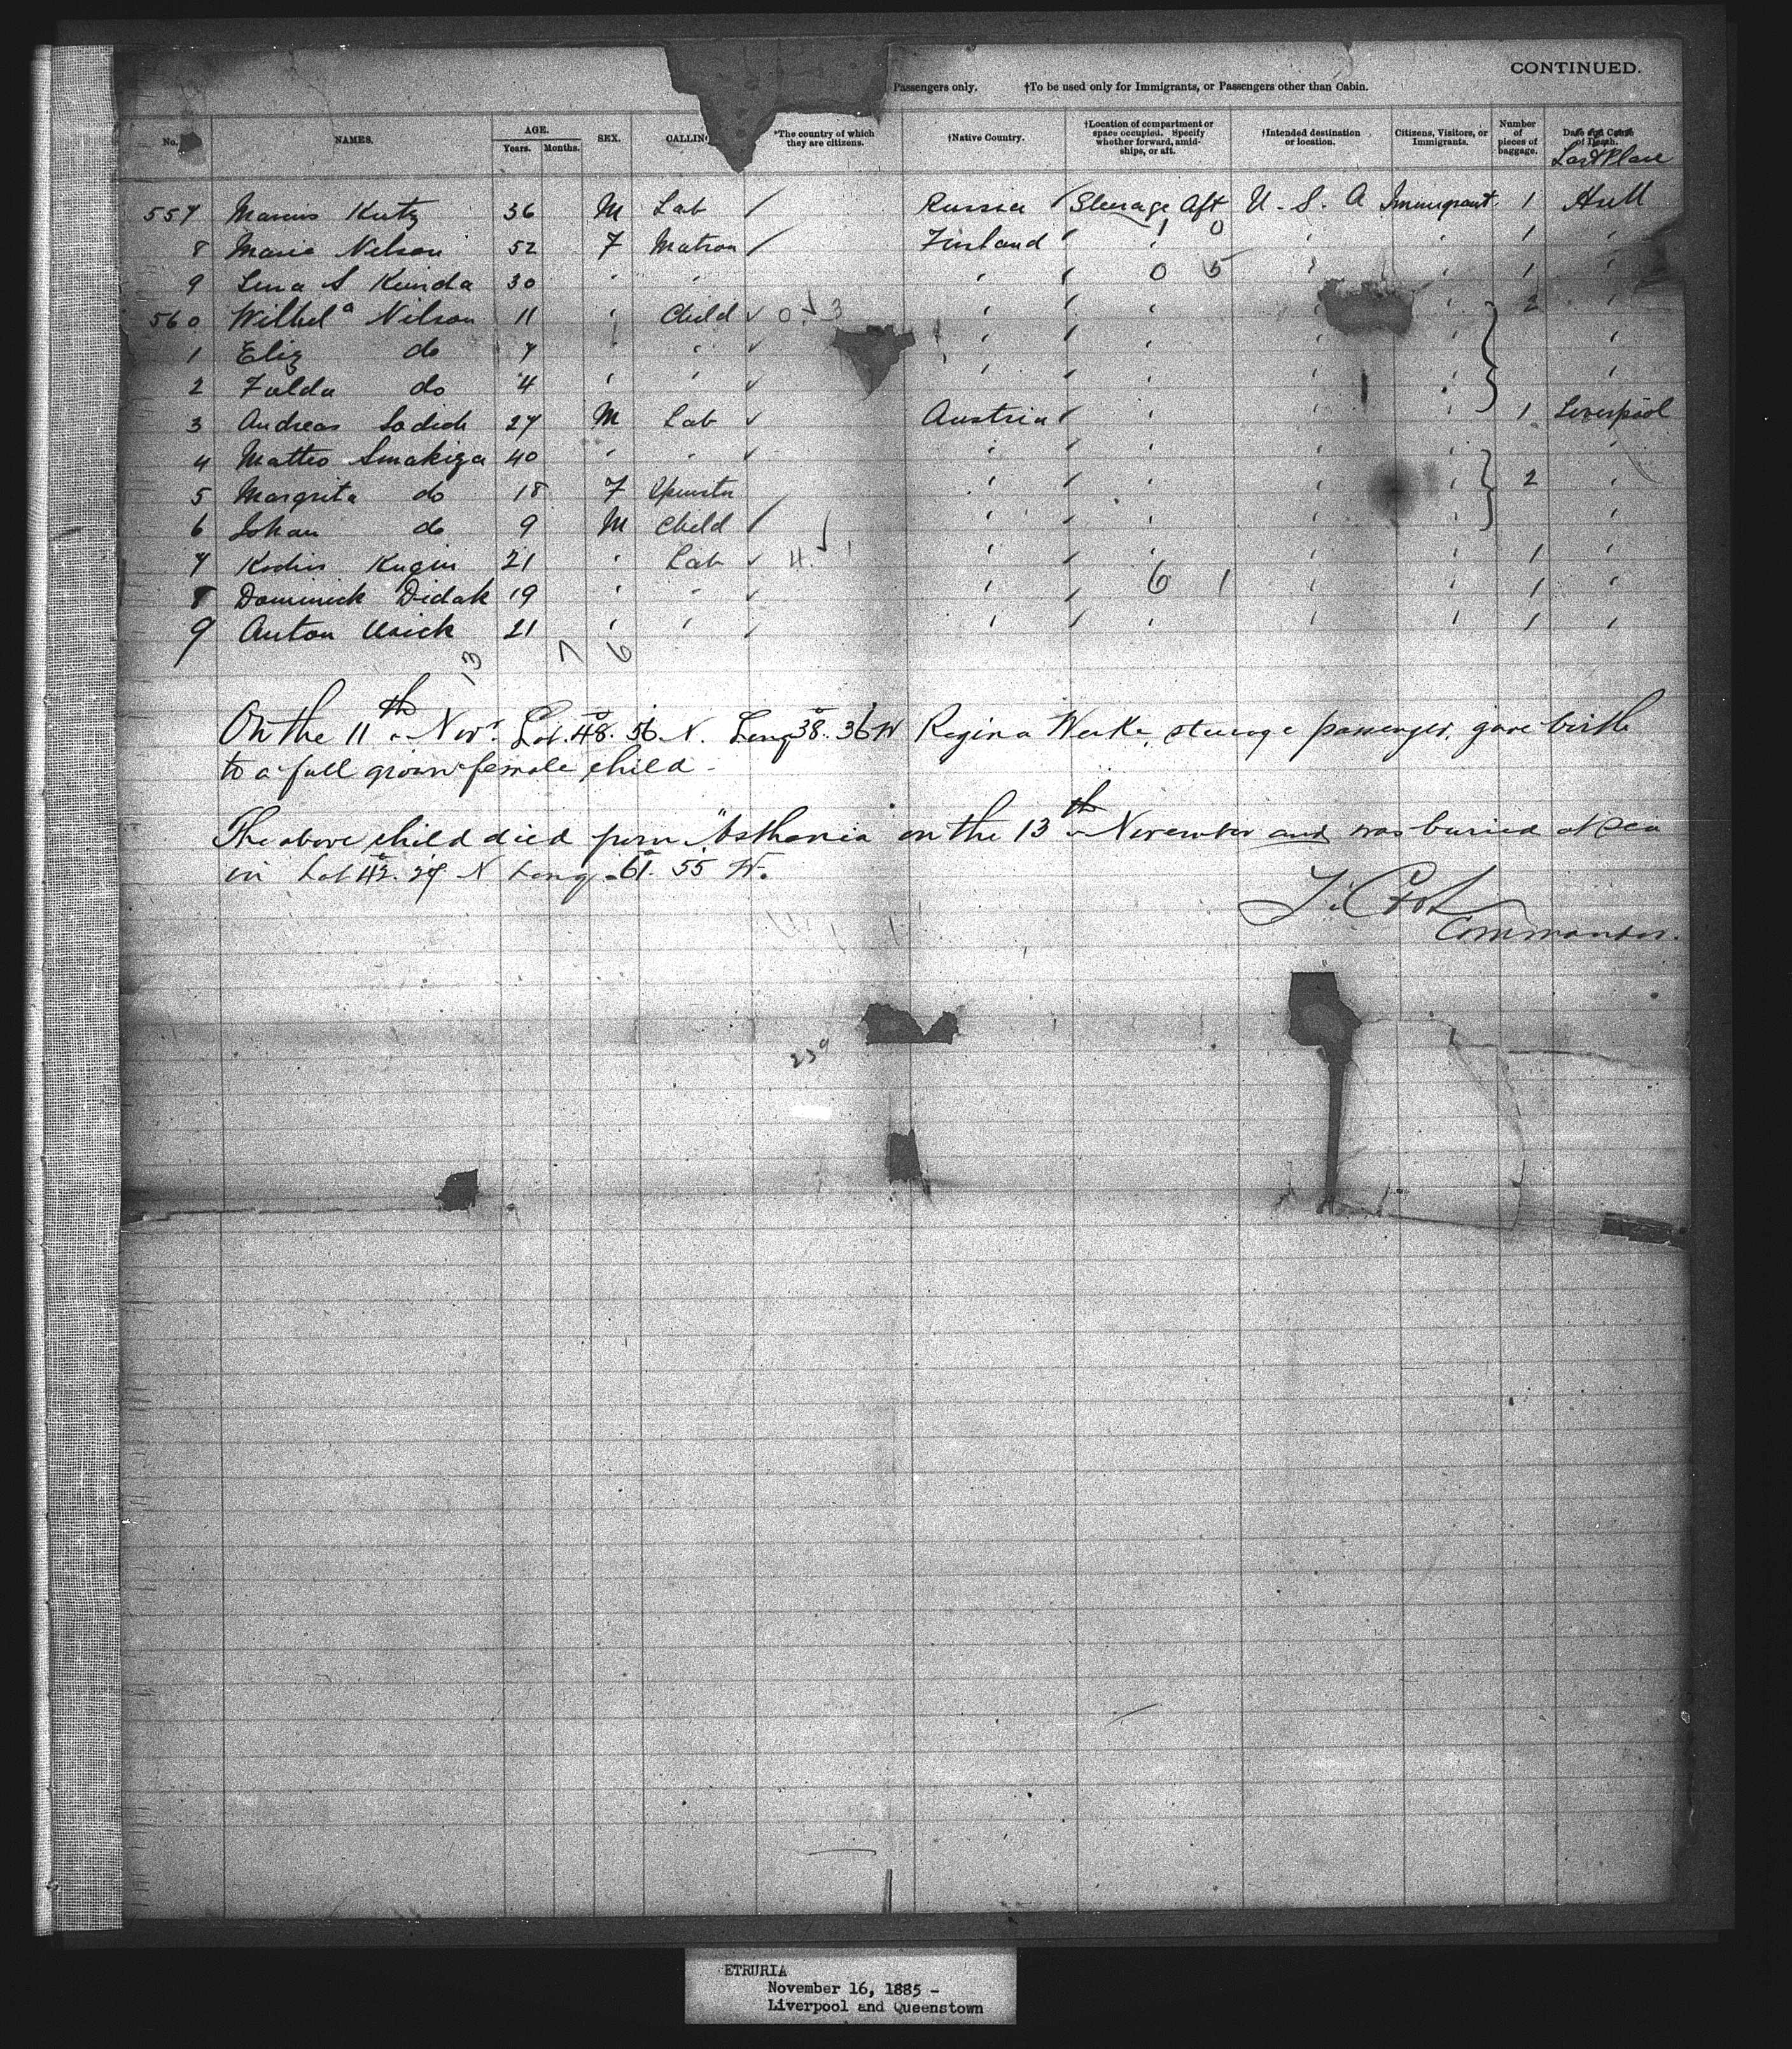 CONTINUED.
Passengers only. †To be used only for Immigrants, or Passengers other than Cabin.
No. NAMES. AGE. Years. Months. SEX. CALLING *The country of which they are citizens. †Native Country. †Location of compartment or space occupied. Specify whether forward, amidships, or aft. †Intended destination or location. Citizens, Visitors, or Immigrants. Number of pieces of baggage. Date and Cause of Death. Last Place
557 Marcus Kutz 36 M Lab / Russia Steerage Aft U. S. A Immigrant. 1 Hull
8 Marie Nelson 52 F Matron / Finland " 1 0 " " 1 "
9 Lena S 30 " " " " 0 5 " " 1 "
560 Wilhelᵃ Nilson 11 " Child 0 3 " " " " 2 "
1 Eliz do 7 " " " " " " "
2 Fulda do 4 " " " " " " "
3 Andreas 27 M Lab Austria " " " 1 Liverpool
4 Matteo Smakiza 40 " " " " " " "
5 Margrita do 18 F Spinster " " " " 2 "
6 Johan do 9 M Child / " " " " "
7 21 " Lab 4 1 " " " " 1 "
8 Dominick Didak 19 " " " 6 1 " " 1 "
9 Anton 21 " " " " " " 1 "
13 7 6
On the 11th Novr. Lat. 48°. 56 N. Long 38°. 36 W Regina Werke, steerage passenger, gave birth
to a full grown female child -
The above child died from "Asthenia" on the 13th November and was buried at sea
in Lat 42°. 29 N Long. 61°. 55 W.
Commander.
239
ETRURIA
November 16, 1885 -
Liverpool and Queenstown